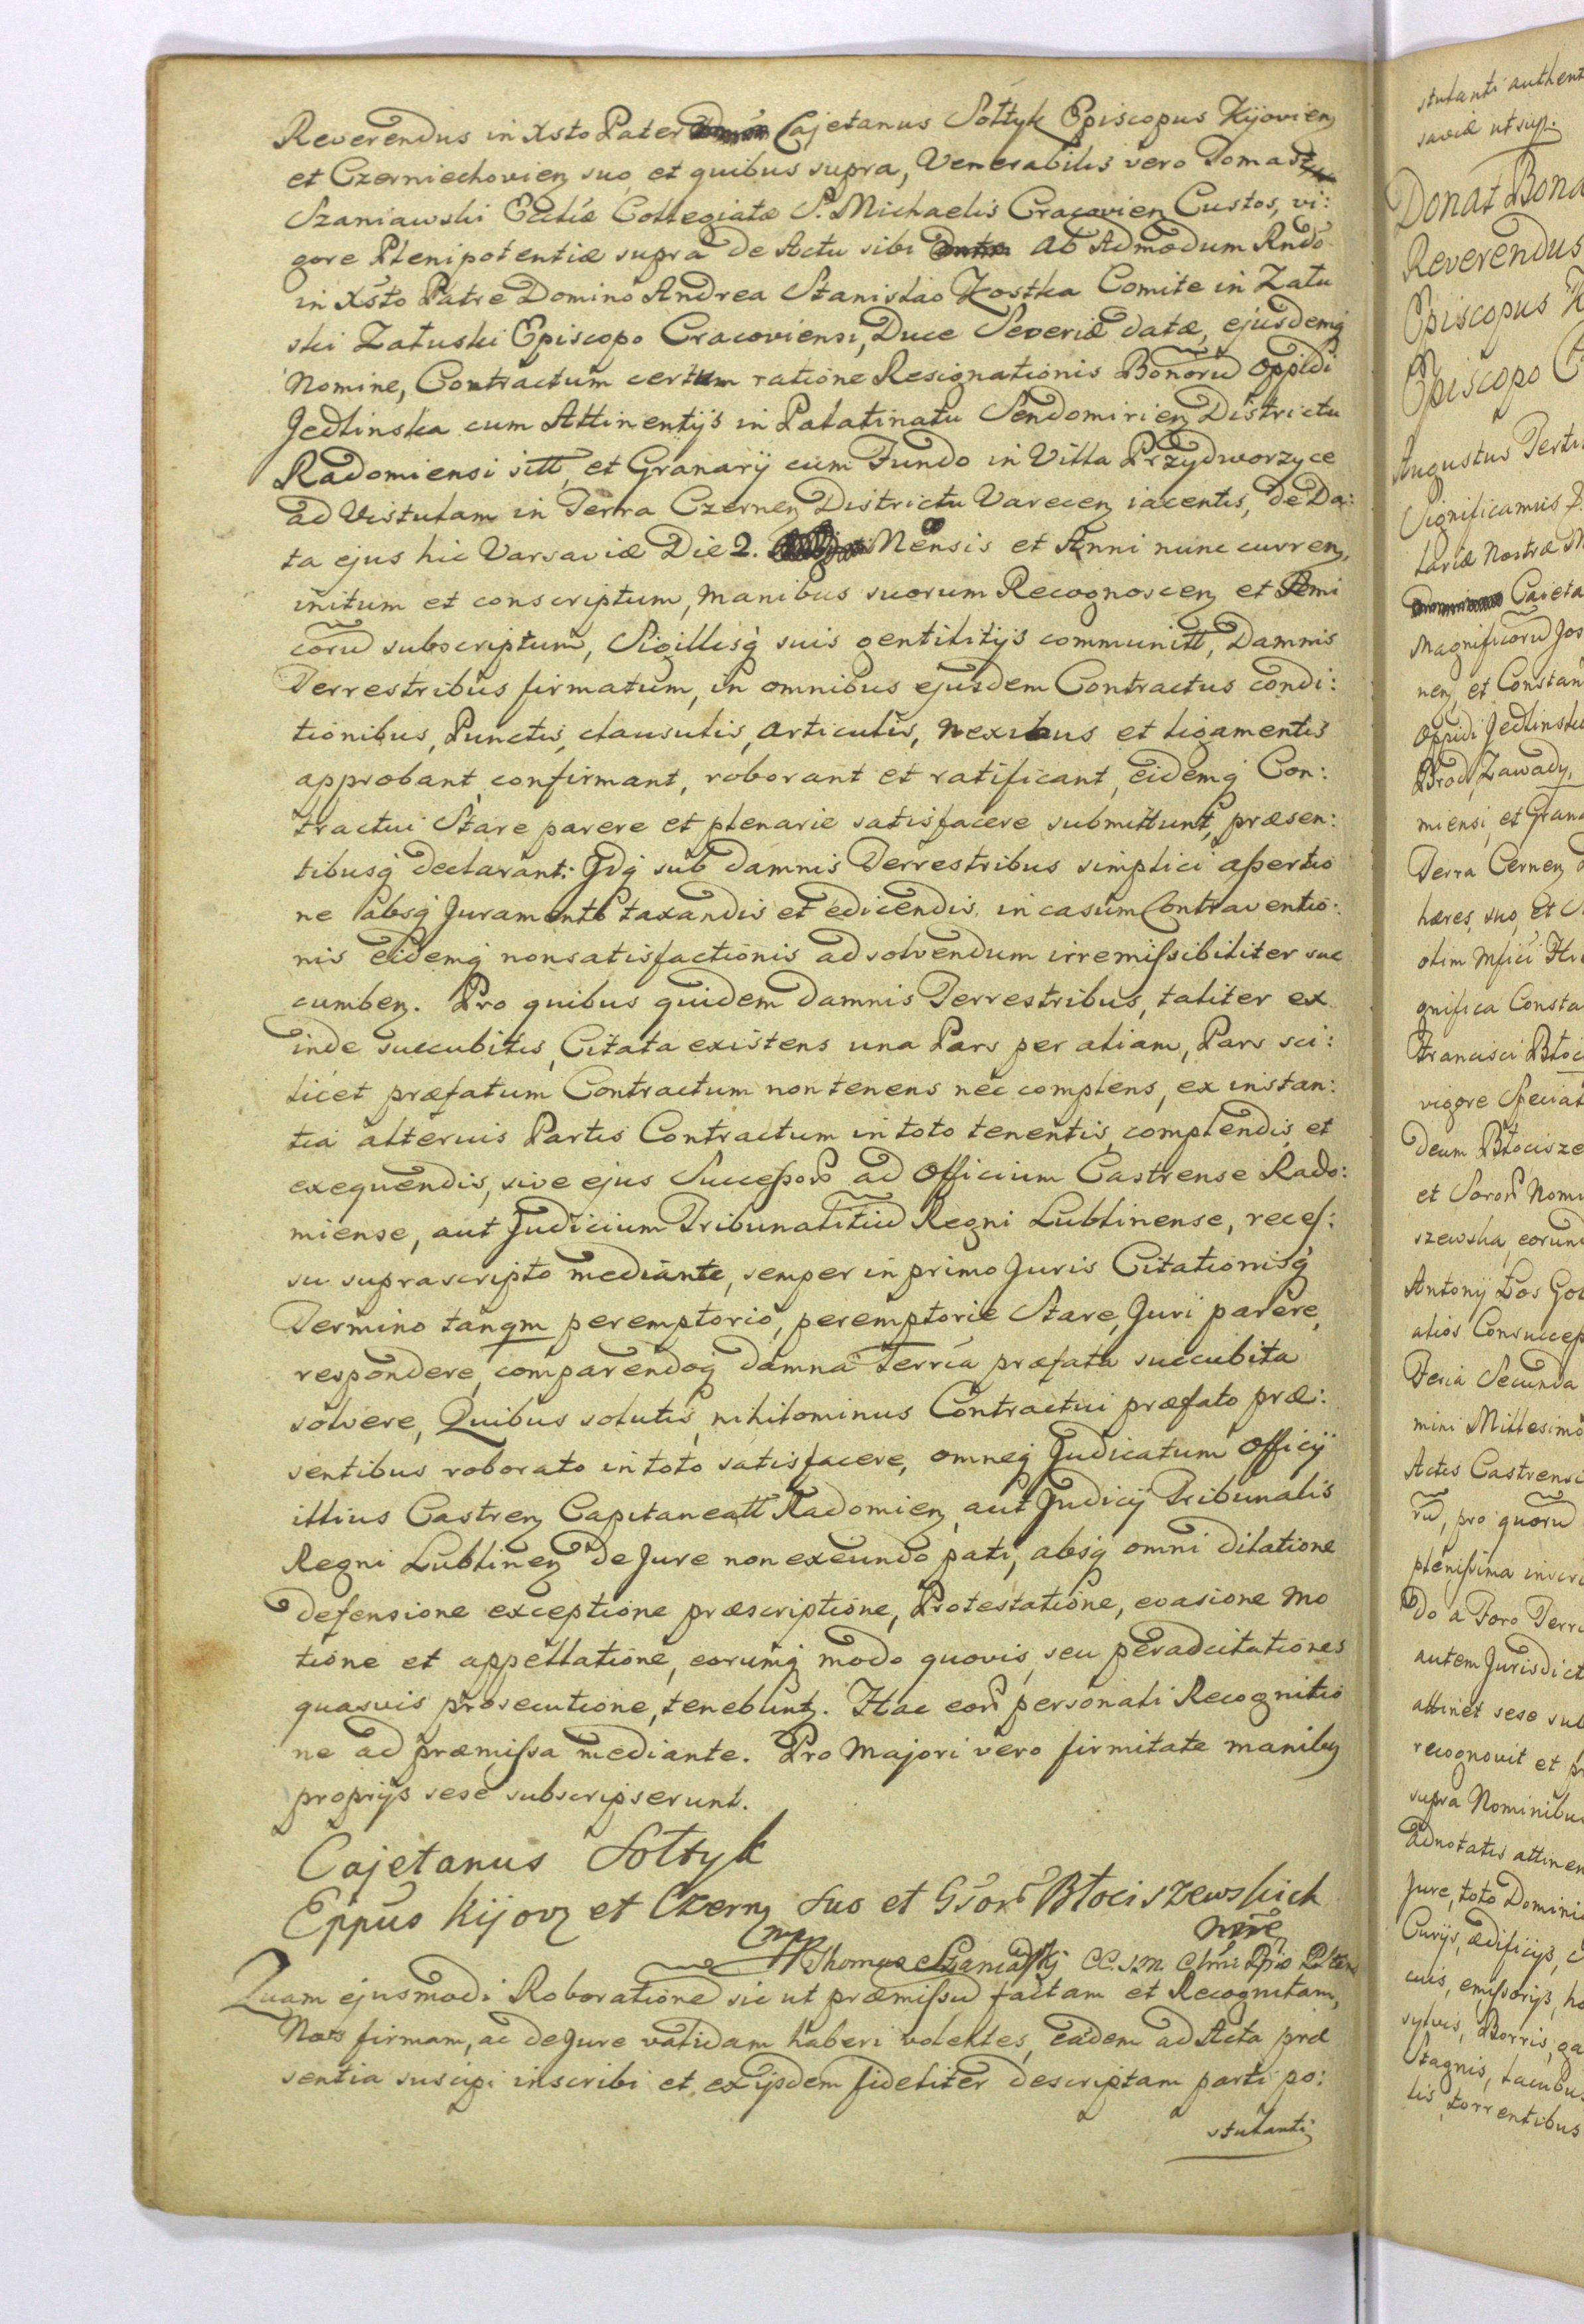 Reverendus in Xsto Pater Cajetanus Sołtyk Episcopus Kijovien
et Czerniechovien suo et quibus supra, Venerabilis vero Thomas
Szaniawski Ecclíæ Collegiatæ S. Michaelis Cracovien Custos, vi:
gore Plenipotentiæ supra de Actu sibi ab Admodum Rndo
in Xsto Patre Domino Andrea Stanislao Kostka Comite in Zału
ski Załuski Episcopo Cracoviensi, Duce Severiæ datæ, ejusdemq
Nomine, Contractum certum ratione Resignationis Bonorũ Oppidi
Jedlinska cum Attinentijs in Palatinatu Sendomirien Districtu
Radomiensi sitt, et Granarij cum Fundo in Villa Przydworzyce
ad Vistulam in Terra Czernen Districtu Varecen iacentis, de Da:
ta ejus hic Varsaviæ Die 2. Mensis et Anni nunc curren,
initum et conscriptum, manibus suorum Recognoscen et Ami
corũ subscriptum, Sigillisq suis gentilitijs communitt, Damnis
Terrestribus firmatum, in omnibus ejusdem Contractus condi:
tionibus, Punctis, clausulis, articulis, nexibus et ligamentis
approbant, confirmant, roborant et ratificant, eidemq Con:
tractui Stare parere et plenarie satisfacere submittunt, præsen:
tibusq declarant: Idq sub damnis Terrestribus simplici aſsertio
ne absq Juramento taxandis et edicendis in casum Contraventio:
nis eidemq nonsatisfactionis ad solvendum irremiſsibiliter suc
cumben. Pro quibus quidem damnis Terrestribus, taliter ex
inde succubitis, Citata existens una Pars per aliam, Pars sci:
licet præfatum Contractum non tenens nec complens, ex instan:
tia alterius Partis Contractum in toto tenentis, complendis, et
exequendis, sive ejus Succeſsor ad Officium Castrense Rado:
miense, aut Judicium Tribunalitiũ Regni Lublinense, receſ:
su suprascripto mediante, semper in primo Juris Citationisq
Termino tanqm peremptorio, peremptorie Stare, Juri parere,
respondere, comparendoq damna Terría præfata succubita
solvere, Quibus solutis, nihilominus Contractui præfato præ:
sentibus roborato in toto satisfacere, omneq Judicatum Officij
illius Castren Capitaneatt Radomien, aut Judicij Tribunalis
Regni Lublinen de Jure non exeundo pati, absq omni dilatione
defensione exceptione præscriptione, Protestatione, evasione mo
tione et appellatione, eorumq modo quovis, seu peradcitationes
quasvis prosecutione, tenebunt. Hac eor personali Recognitio
ne ad præmiſsa mediante. Pro Majori vero firmitate manibq
proprijs sese subscripserunt.
Cajetanus Sołtyk
Eppus Kijov et Czern suo et Błociszewskich
Nõe
mp
Thomas Szaniawskj
Quam ejusmodi Roborationẽ sic ut præmiſsũ factam et Recognitam,
firmam, ac de Jure validam haberi volentes, eadem ad Acta præ
sentia suscipi inscribi et ex ijsdem fideliter descriptam parti po:
stulanti
stulanti authent
saviæ ut sup.
Donat Bona
Reverendus
Episcopus K
Episcopo C
Augustus Terti
Significamus
tariæ Nostræ
Caieta
Magnificorũ Jos
nen, et Constan
Oppidi Jedlinsk
Brod, Zawady,
miensi, et Grana
Terra Cernen
hæres, suo, et
olim Mfici
gnifica Consta
Francisci Błoc
vigore Special
deum Błocisze
et Soror Nomi
szewska, eorund
Antonij Łos
alios Consucceſ
Feria Secunda
mini Millesimo
Actis Castrensi
rũ, pro quorũ
pleniſsima inscri
do a Foro Terre
autem Jurisdict
attinet sese sub
recognovit et p
supra Nominibu
adnotatis attinen
Jure, toto Domini
Curijs, ædificijs,
cuis, emiſsorijs, ho
sylvis, Borris, ga
Stagnis, lacubus
lis torrentibus